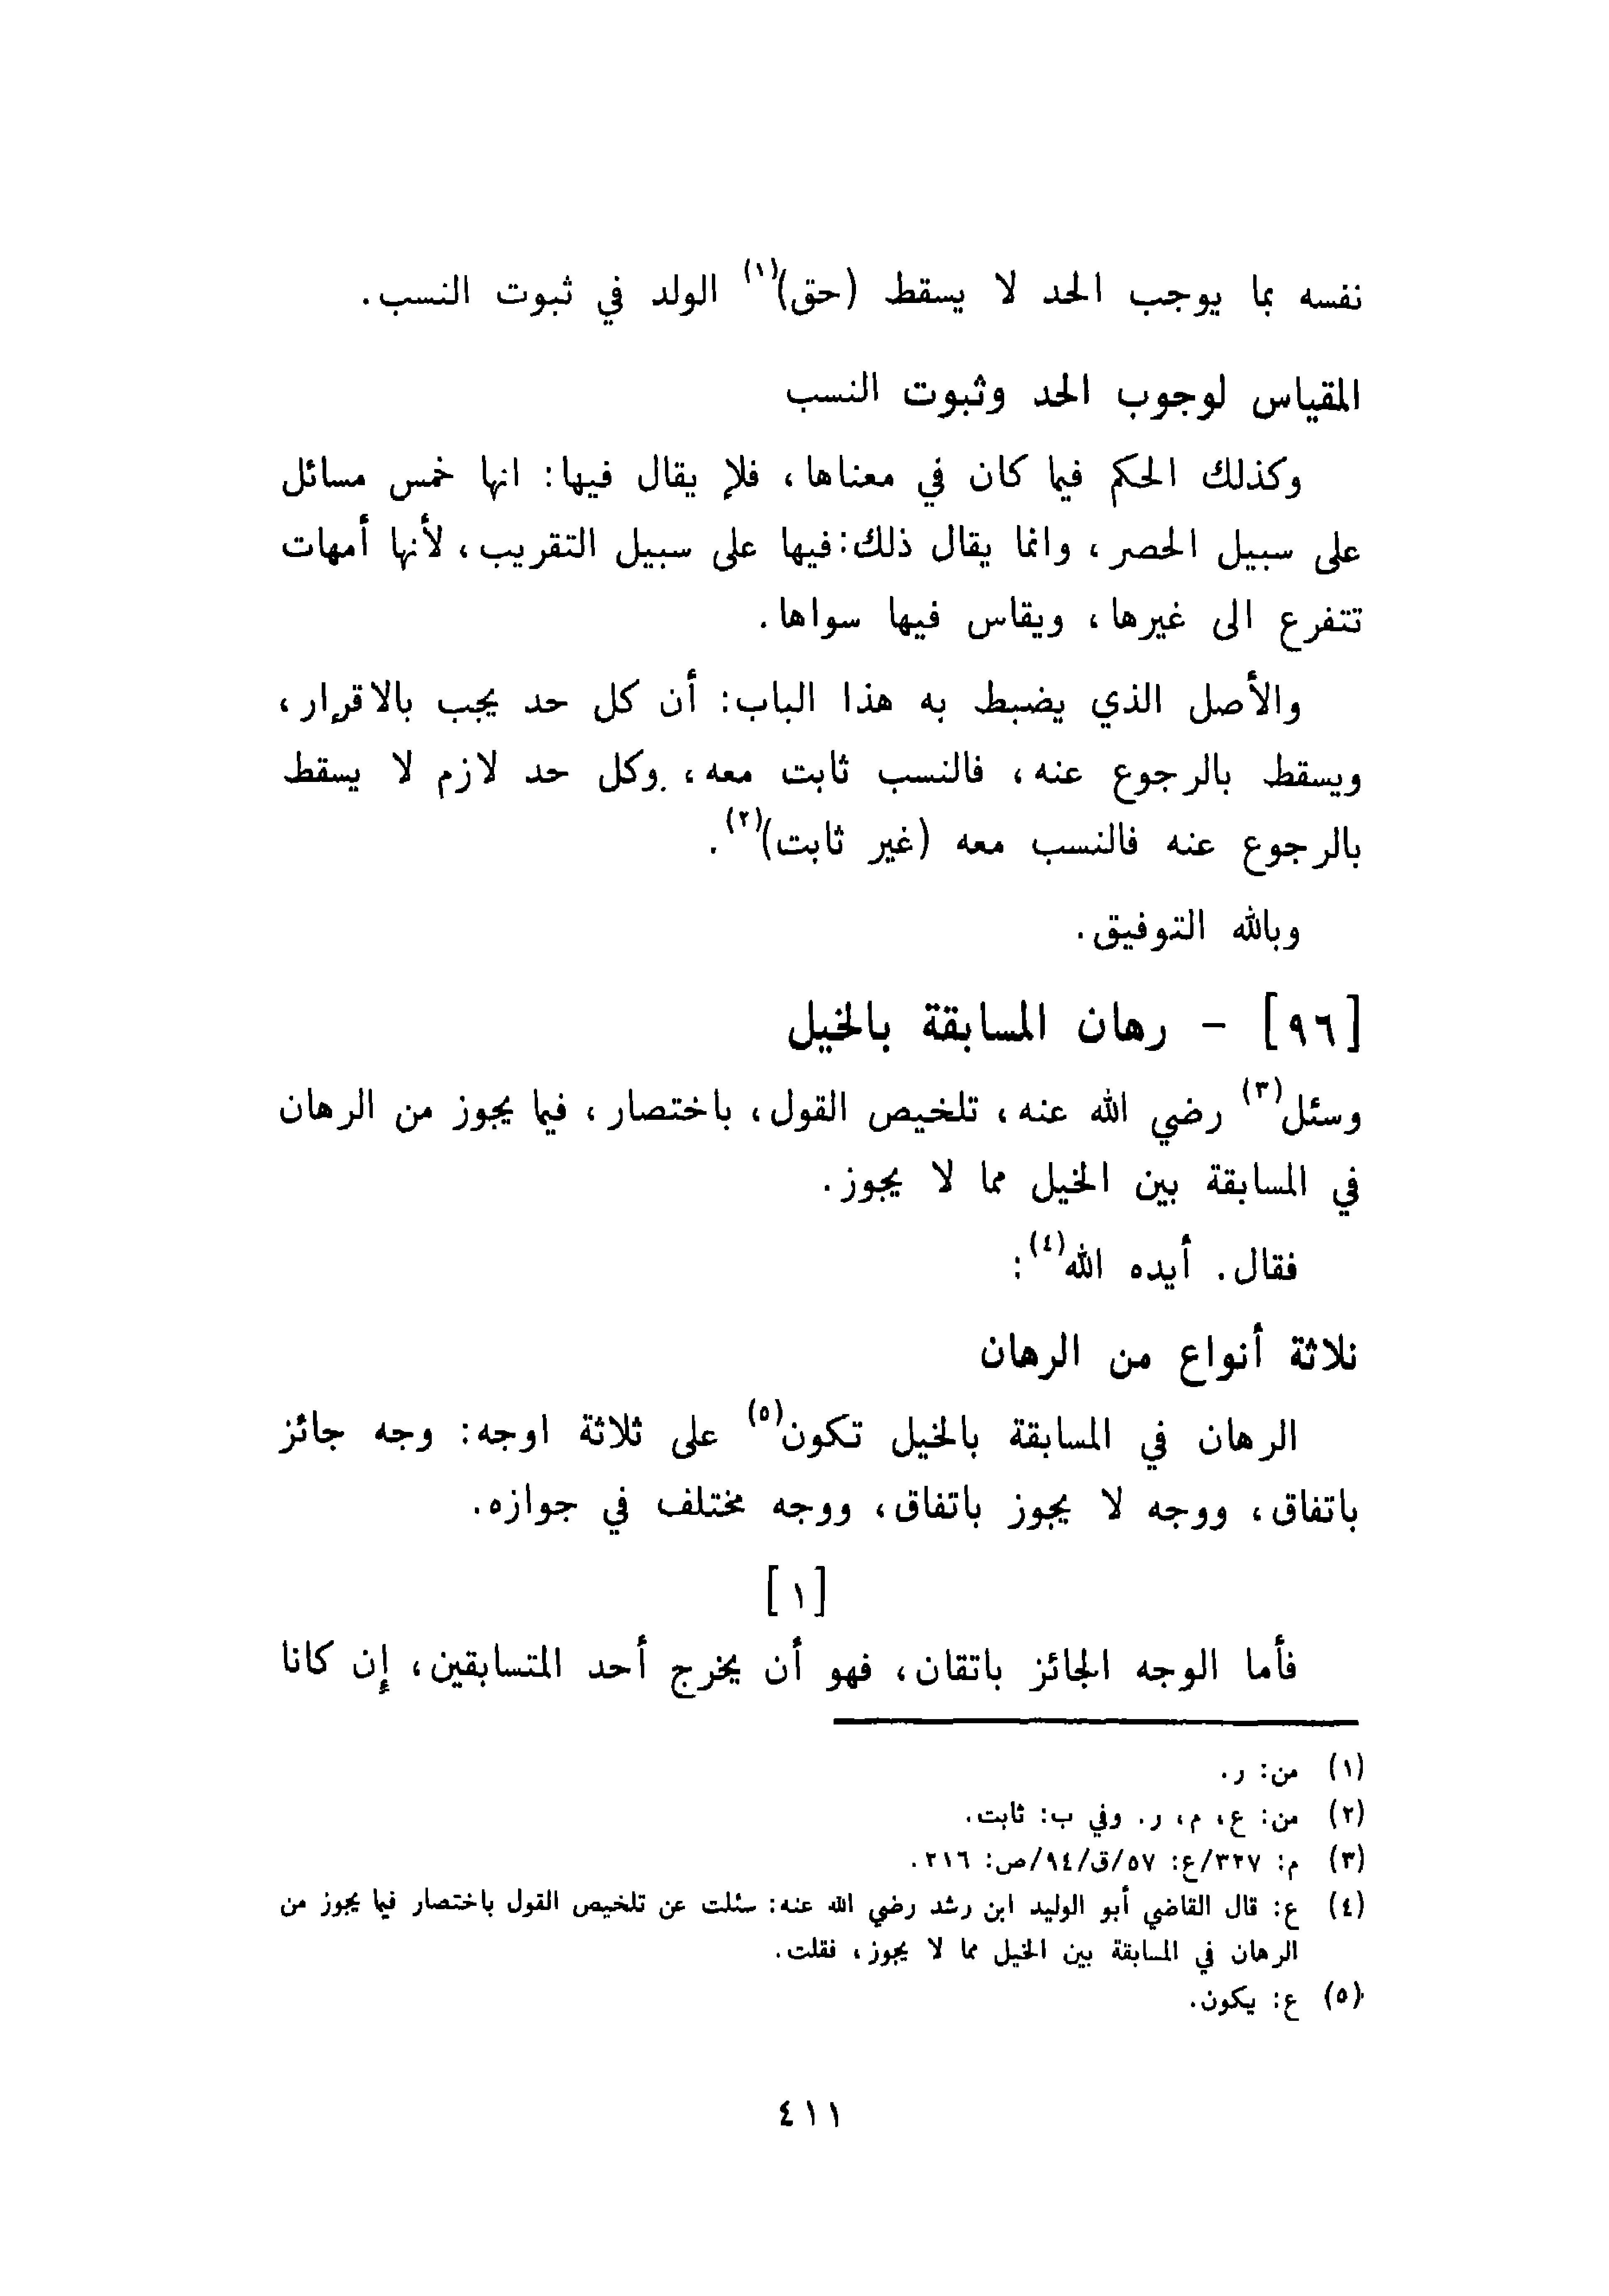 نفسه بما يوجب الحد لا يسقط (حق)(١) الولد في ثبوت النسب.
المقياس لوجوب الحد وثبوت النسب
وكذلك الحكم فيما كان في معناها، فلا يقال فيها: انها خمس مسائل
على سبيل الحصر، وانما يقال ذلك: فيها على سبيل التقريب، لأنها أمهات
تتفرع الى غيرها، ويقاس فيها سواها.
والأصل الذي يضبط به هذا الباب: أن كل حد يجب بالاقرار،
ويسقط بالرجوع عنه، فالنسب ثابت معه، وكل حد لازم لا يسقط
بالرجوع عنه فالنسب معه (غير ثابت)(٢).
وبالله التوفيق.
[٩٦] - رهان المسابقة بالخيل
وسئل(٣) رضي الله عنه، تلخيص القول، باختصار، فيما يجوز من الرهان
في المسابقة بين الخيل مما لا يجوز.
فقال. أيده الله(٤):
ثلاثة أنواع من الرهان
الرهان في المسابقة بالخيل تكون(٥) على ثلاثة اوجه: وجه جائز
باتفاق، ووجه لا يجوز باتفاق، ووجه مختلف في جوازه.
[١]
فأما الوجه الجائز باتقان، فهو أن يخرج أحد المتسابقين، إن كانا
(١) من: ر.
(٢) من: ع، م، ر. وفي ب: ثابت.
(٣) م: ٣٢٧/ع: ٥٧/ق/٩٤/ص: ٢١٦.
(٤) ع: قال القاضي أبو الوليد ابن رشد رضي الله عنه: سئلت عن تلخيص القول باختصار فيما يجوز من
الرهان في المسابقة بين الخيل مما لا يجوز، فقلت.
(٥) ع: يكون.
٤١١